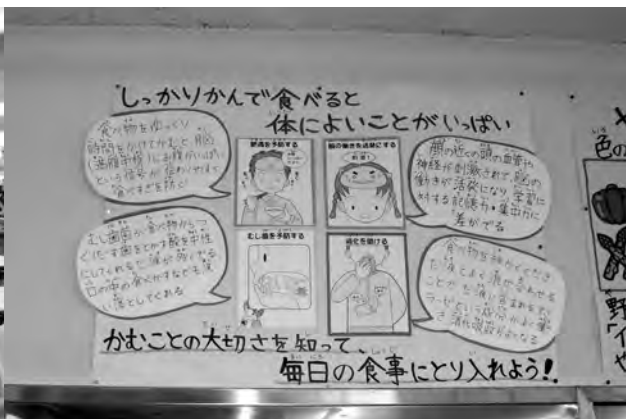 しっかりかんで食べると
体によいことがいっぱい
食べ物をゆっくり
時間をかけてかむと、脳の
満腹中枢にお腹がいっぱい
という信号が
食べすぎを防ぐ
肥満を予防する
脳の働きを活発にする
顔の近くの頭の血管や
神経が刺激されて、脳の
働きが活発になり、学習に
対する記憶力・集中力に
差がでる
むし歯菌が食べ物からつ
くだす歯をとかす酸を中性
にしてくれるだ液が強くでる
口の中の食べかすなども洗
い落としてくれる
むし歯を予防する
消化を助ける
食べ物を細かくくだき
だ液とよく混ぜ合わせる
ことでだ液に含まれるアミ
ラーゼという成分がよく働
き消化吸収がよくなる
かむことの大切さを知って、
毎日の食事にとり入れよう!
色の
野